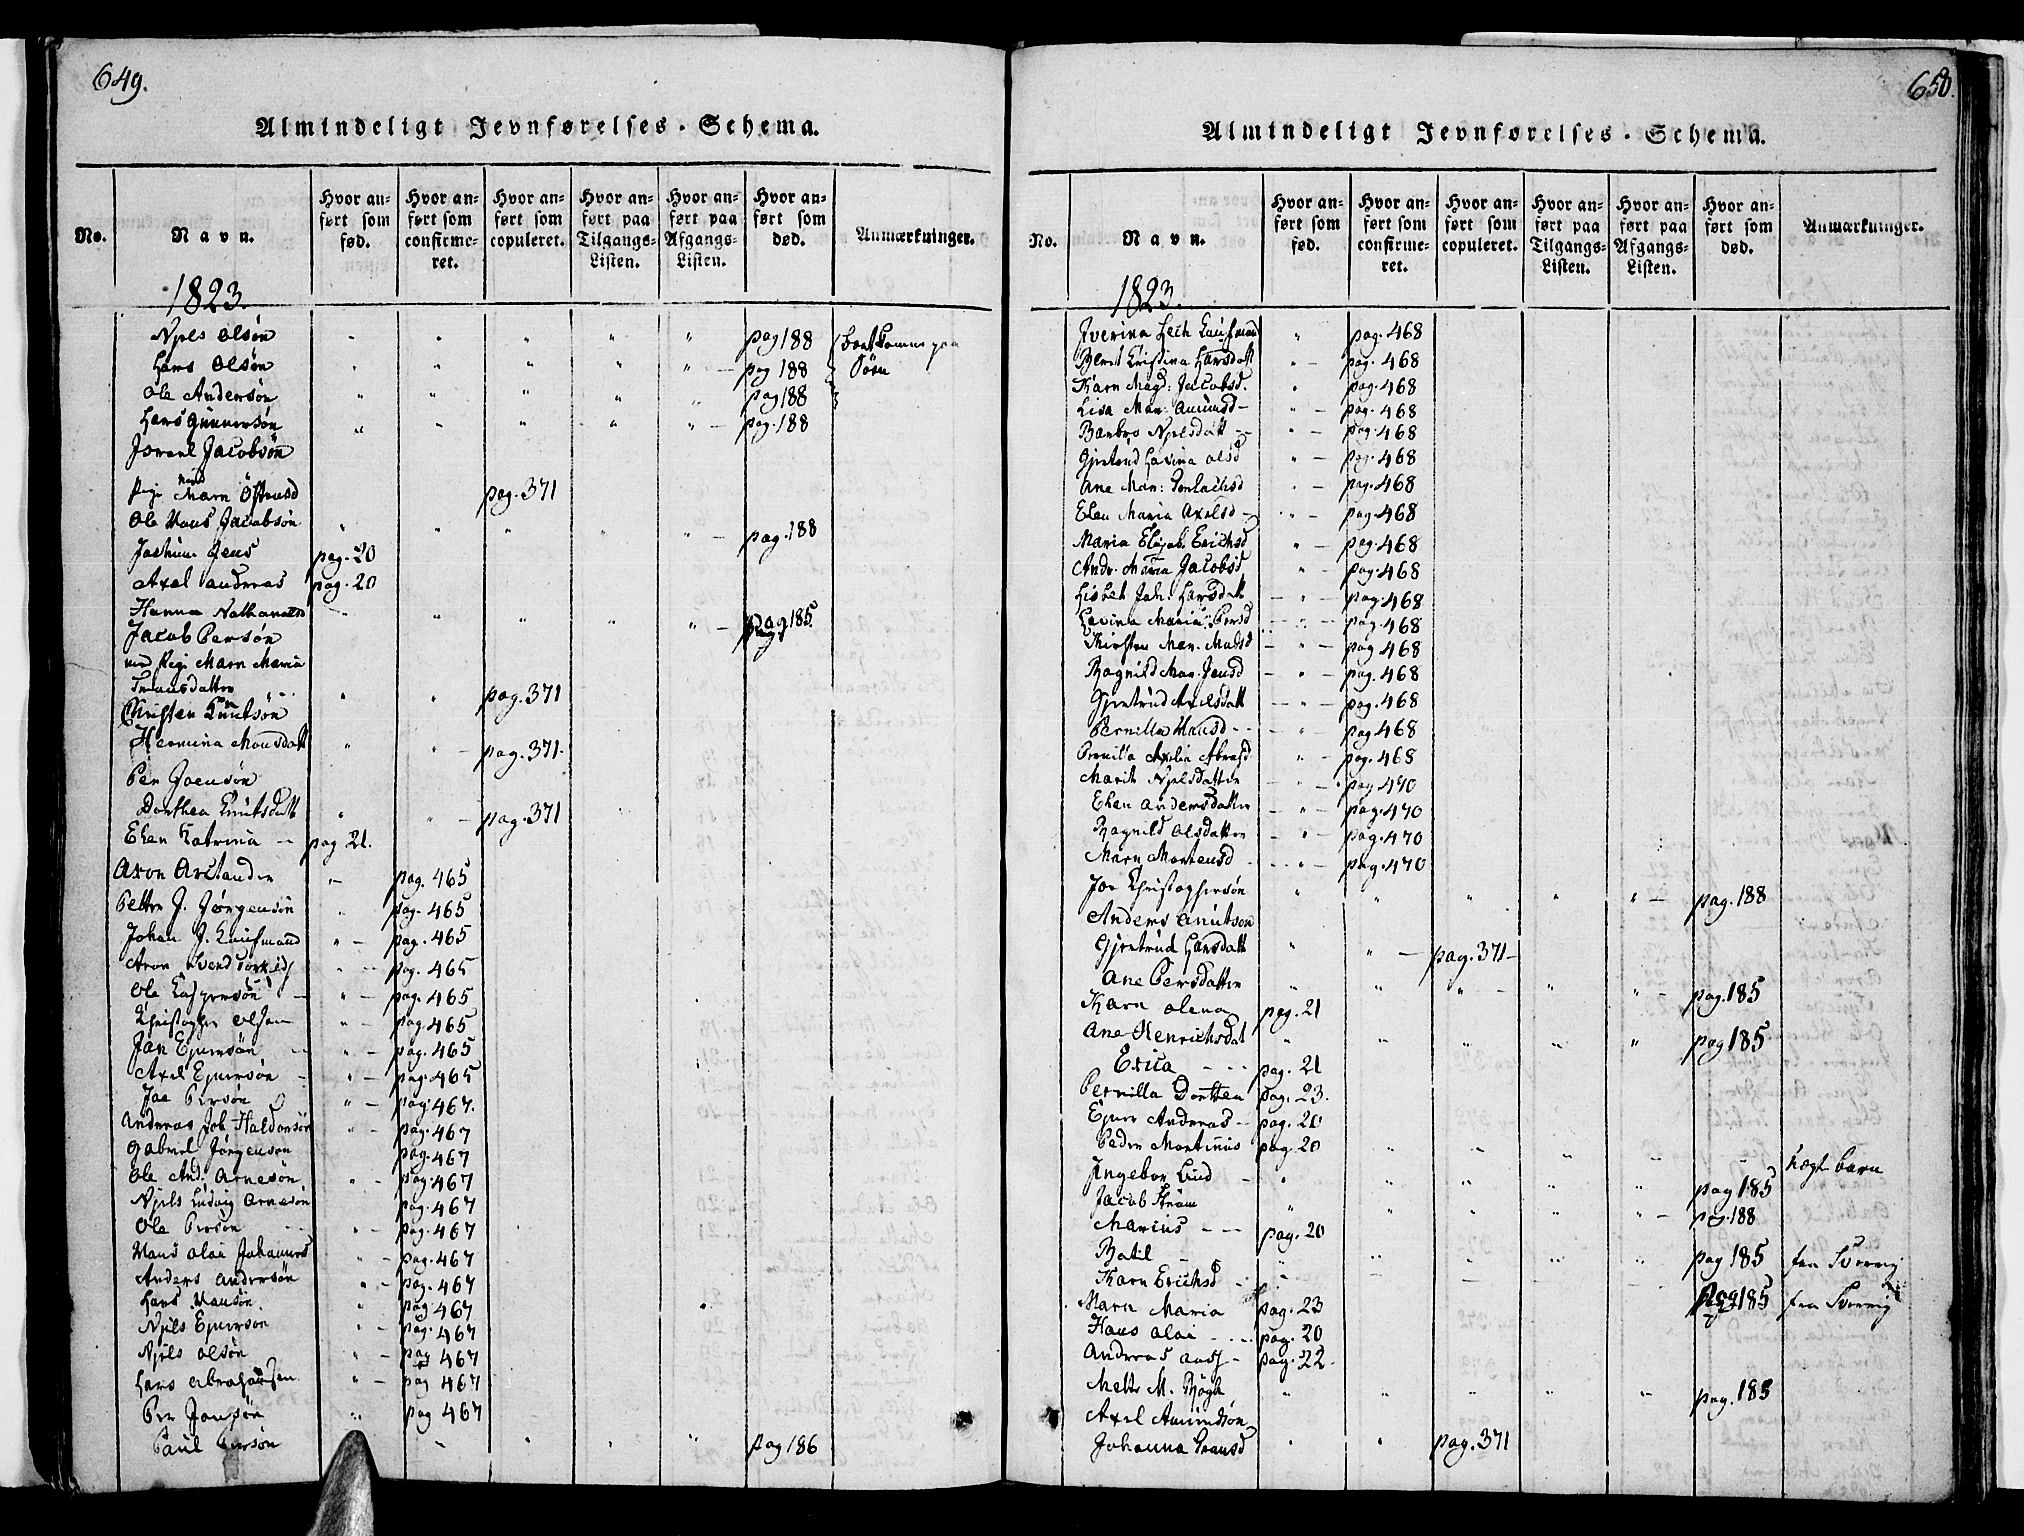 649.
Almindeligt Jevnførelses-Schema.
No. Navn. Hvor anført som fød. Hvor anført som confirmeret. Hvor anført som copuleret. Hvor anført paa Tilgangs-Listen. Hvor anført paa Afgangs-Listen. Hvor anført som død. Anmærkninger.
1823.
Njels Olsøn " " " " " pag 188
Hans Olsøn " " " " " pag 188 Søen
Ole Andersøn " " " " " pag 188
Hans Gunnersøn " " " " " pag. 188
Israel Jacobsøn
Pige Marn pag. 371
Ole Mons Jacobsøn " " " " " pag. 188
Jochum Jens pag. 20
Axel Andreas pag. 20
Hanna Nathanaelsd " " " " " pag 185.
Jacob Persøn
med Pige Marn Maria
Transdatter " " pag. 371
Christen Knutsøn
Hermina Monsdatt " " pag. 371.
Per Joensøn
Dorthea Knutsdatt " " pag. 371
Elen Katrina pag 21.
Aron Arctander " pag. 465
Petter J. Jørgensøn " pag. 465
Johan J. Kaufmand " pag. 465
Aron Svend " pag. 465
Ole Kaspersøn " pag. 465
Christopher Olsen " pag. 465
Jan Ejnersøn " pag. 465
Axel Ejnersøn " pag. 465
Joe Persøn " pag. 467.
Andreas Joh Haldorsøn " pag. 467
Gabriel Jørgensøn pag. 467
Ole And. Arnesøn " pag. 467
Njels Ludvig Arnesøn pag. 467
Ole Persøn " pag. 467
Mons Olai Johannes " pag. 467
Anders Andersøn " pag. 467
Hans Monsøn. " pag 467
Njels Ejnersøn " pag. 467
Njels Olsøn " pag 467
Hans Abrahamsen " pag 467
Per Jonsøn " pag 467
Paul Persøn " " " " pag 186
650.
Almindeligt Jevnførelses-Schema.
No. Navn. Hvor anført som fød. Hvor anført som confirmeret. Hvor anført som copuleret. Hvor anført paa Tilgangs-Listen. Hvor anført paa Afgangs-Listen. Hvor anført som død. Anmærkninger.
1823.
Iverina Kaufmand " pag. 468
Beret Kristina Hansdatt " pag. 468
Karn Magd: Jacobsd. " pag. 468
Lisa Mar: Amundsd " pag. 468
Barbro Njelsdatt " pag. 468
Gjertrud Lavina Olsd " pag. 468
Ane Mar: " pag. 468
Elen Maria Axelsd " pag. 468
Maria Elisab. Erichsd " pag. 468
Andr. Maria Jacobsd " pag. 468
Lisbet Joh. Larsdatt " pag. 468
Lavina Maria Persd " pag. 468
Kirsten Mar. Matsd " pag 468
Ragnild Mar. Jensd " pag. 468
Gjertrud Axelsdatt " pag. 468
Pernilla Knutsd " pag 468
Pernilla Axelia " pag. 468
Marit Njelsdatter " pag 470
Elen Andersdatter " pag. 470
Ragnild Olsdatter " pag. 470
Marn Mortensd " pag. 470
Joe Christophersøn " " " " " pag. 188
Anders Knutsøn
Gjertrud Hansdatt " " pag. 371
Ane Persdatter " " " " " pag. 185
Karn Olena pag. 21
Ane Henrichsdat " " " " " pag 185
Erica pag. 21
Pernilla Dorthea pag. 23.
Ejner Andreas pag. 20
Peder Martinus pag. 20
Ingebor Lind " " " " " pag 185 Lægt barn
Jacob Strøm " " " " " pag. 188
Marius pag. 20
Botil " " " " pag 185 fra Sverrig
Karn Erichsd " pag 185 fra Sverrig
Marn Maria pag. 23
Hans Olai pag. 20
Andreas pag. 22.
Mette M. Bøgh " " " " " pag. 185
Axel Amundsøn
Johanna " " pag. 371